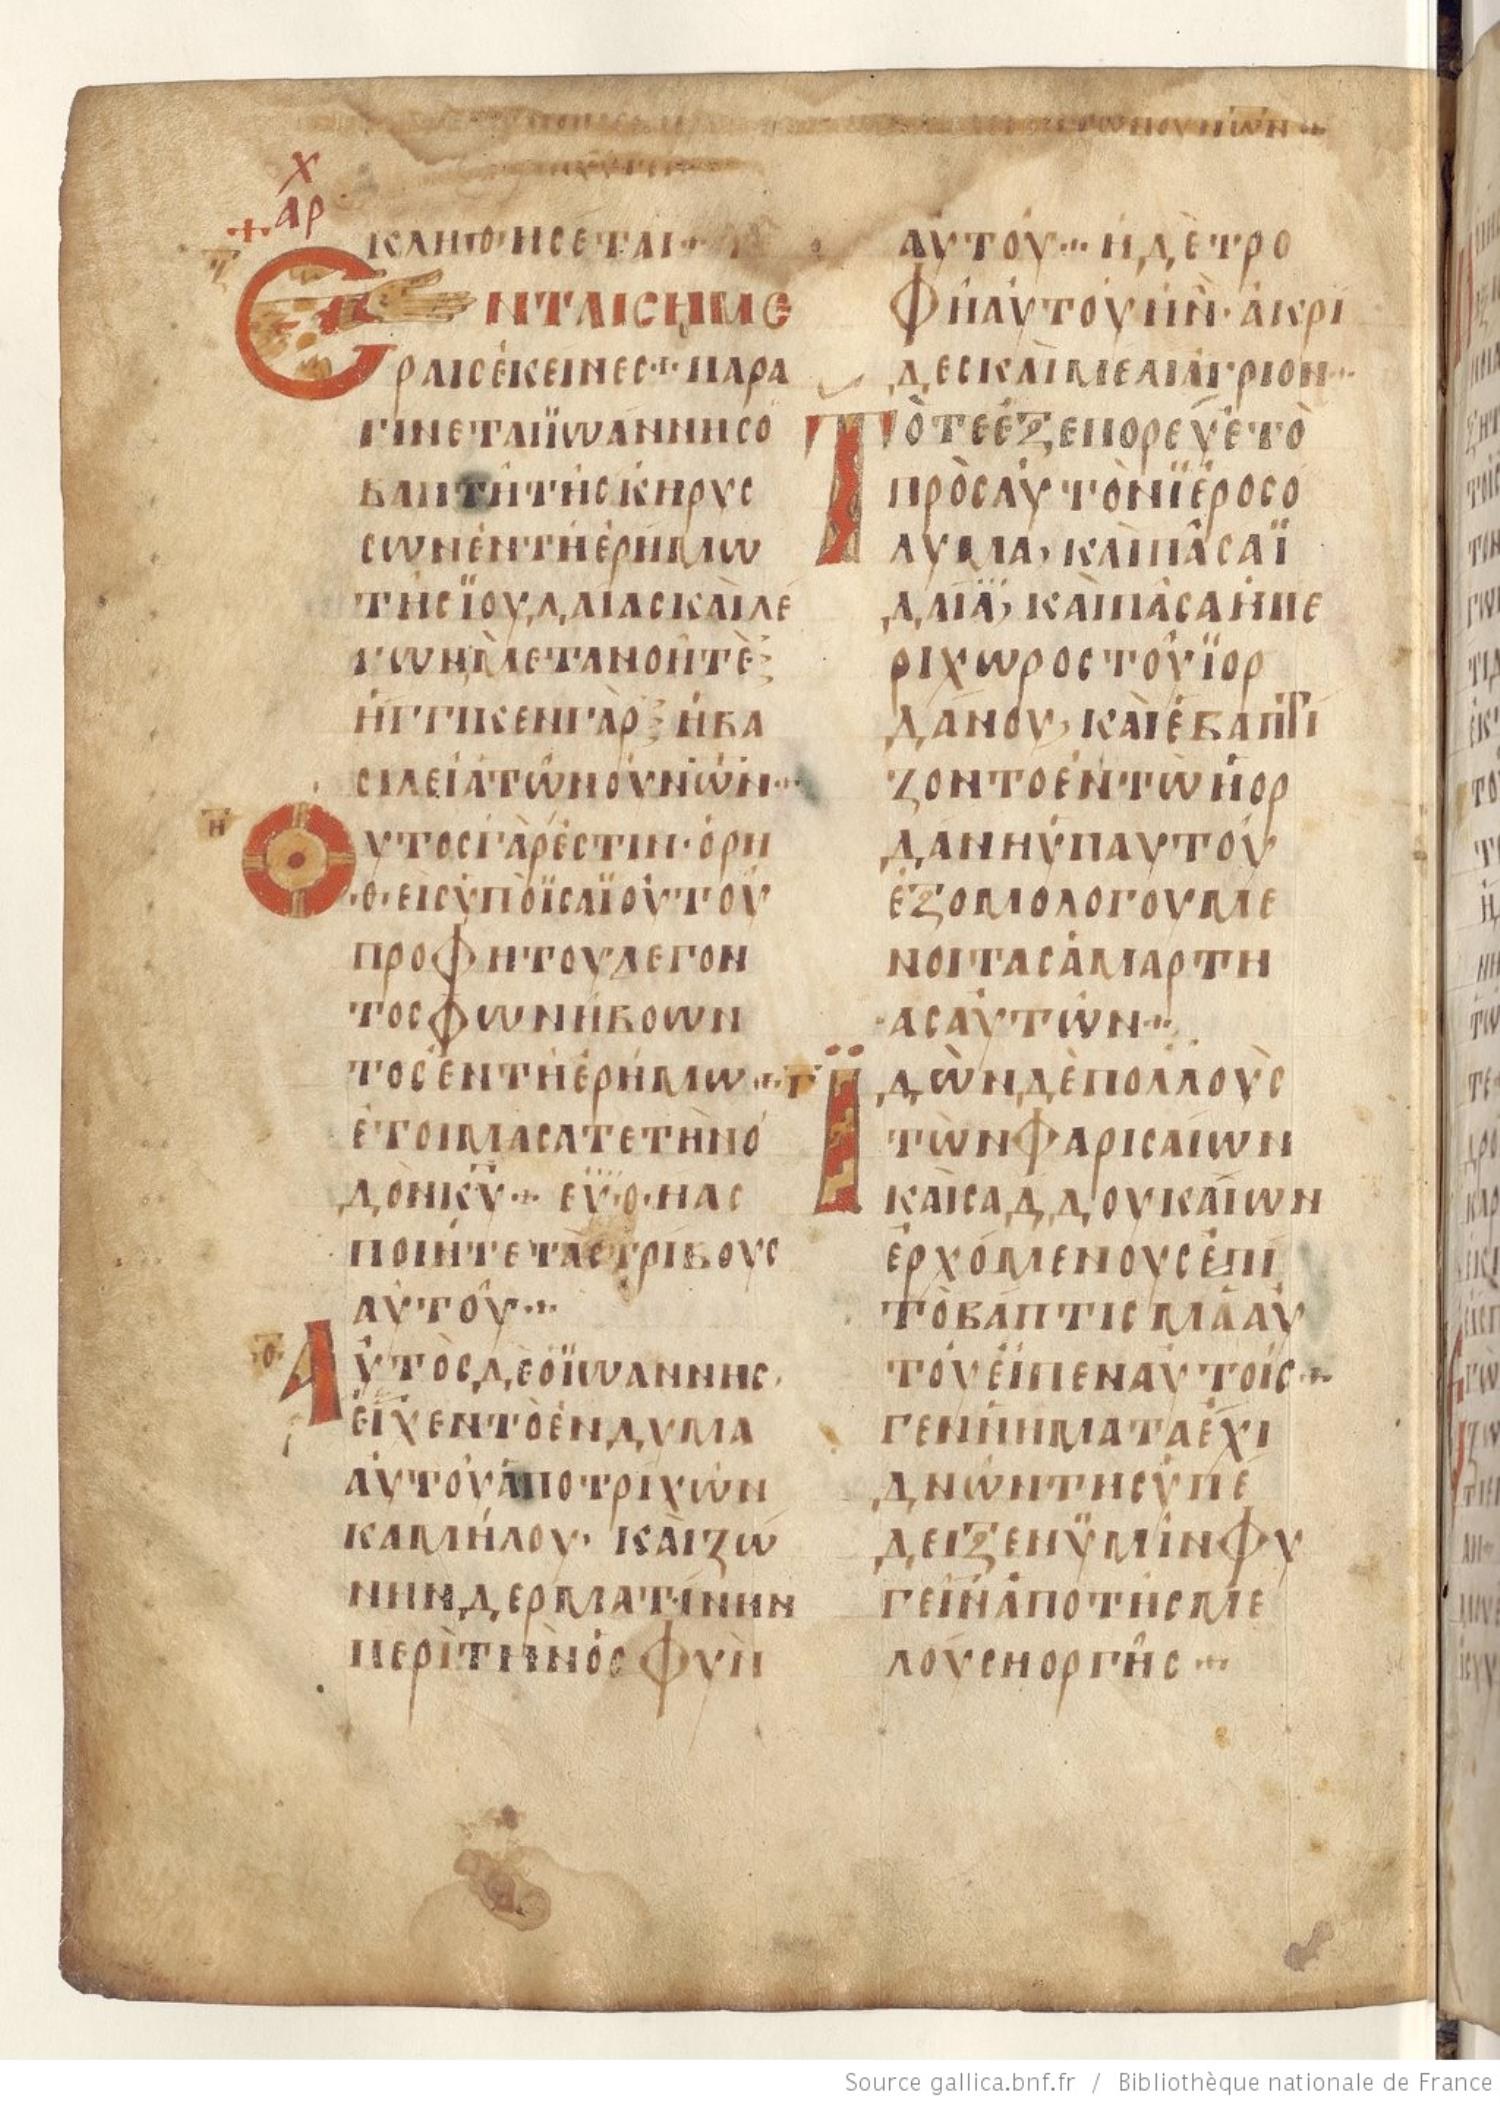 Χ
ΑΡ
ΚΛΗΘΗΣΕΤΑΙ
ΕΝΤΑΙΣΗΜΕ
ΡΑΙΣἘΚΕΙΝΕΣ·ΠΑΡΑ
ΓΙΝΕΤΑΙΪΩΑΝΝΗΣΟ
ΒΑΠΤΗΤΗΣΚΗΡΥΣ
ΣΩΝΕΝΤΗΕΡΗΜΩ
ΤΗΣΪΟΥΔΑΙΑΣΚΑῚΛΕ
ΓΩΝΜΕΤΑΝΟΗΤΕ
ΗΓΓΙΚΕΝΓΑΡΗΒΑ
ΣΙΛΕΙΑΤΩΝΟΥΝΩΝ
Η
ΟΥΤΟΣΓΑΡΕΣΤΙΝ·ΟΡΗ
Θ·ΕΙΣΥΠΟΪΣΑΪΟΥΤΟΥ
ΠΡΟΦΗΤΟΥΛΕΓΟΝ
ΤΟΣΦΩΝΗΒΟΩΝ
ΤΟΣΕΝΤΗΕΡΗΜΩ
ΕΤΟΙΜΑΣΑΤΕΤΗΝΟ
ΔΟΝΚΥ ΕΥ·Θ·ΗΑΣ
ΠΟΙΗΤΕΤΑΣΤΡΙΒΟΥΣ
ΑΥΤΟΥ
Θ
ΑΥΤΟΣΔΕΟΪΩΑΝΝΗΣ
ΕΙΧΕΝΤΟΕΝΔΥΜΑ
ΑΥΤΟΥΑΠΟΤΡΙΧΩΝ
ΚΑΜΗΛΟΥ· ΚΑΙΖΩ
ΝΗΝΔΕΡΜΑΤΙΝΗΝ
ΠΕΡΙΤΗΝΟΣΦΥΝ
ΑΥΤΟΥ ΗΔΕΤΡΟ
ΦΗΑΥΤΟΥΗΝ·ΑΚΡΙ
ΔΕΣΚΑΙΜΕΛΙΑΓΡΙΟΝ
ΤΟΤΕΕΞΕΠΟΡΕΥΕΤΟ
ΠΡΟΣΑΥΤΟΝΪΕΡΟΣΟ
ΛΥΜΑ,ΚΑΙΠΑΣΑΪ
ΔΑΙΑ,ΚΑΙΠΑΣΑΗΠΕ
ΡΙΧΩΡΟΣΤΟΥΪΟΡ
ΔΑΝΟΥ,ΚΑΙΕΒΑΠΤΙ
ΖΟΝΤΟΕΝΤΩΗΟΡ
ΔΑΝΗΥΠΑΥΤΟΥ
ΕΞΟΜΟΛΟΓΟΥΜΕ
ΝΟΙΤΑΣΑΜΑΡΤΗ
ΑΣΑΥΤΩΝ
Ι
ΪΔΩΝΔΕΠΟΛΛΟΥΣ
ΤΩΝΦΑΡΙΣΑΙΩΝ
ΚΑΙΣΑΔΔΟΥΚΑΙΩΝ
ΕΡΧΟΜΕΝΟΥΣΕΠΙ
ΤΟΒΑΠΤΙΣΜΑΑΥ
ΤΟΥΕΙΠΕΝΑΥΤΟΙΣ
ΓΕΝΝΗΜΑΤΑΕΧΙ
ΔΝΩΝΤΗΣΥΠΕ
ΔΕΙΞΕΝΫΜΙΝΦΥ
ΓΕΙΝΑΠΟΤΗΣΜΕ
ΛΟΥΣΗΟΡΓΗΣ
Source gallica.bnf.fr / Bibliothèque nationale de France